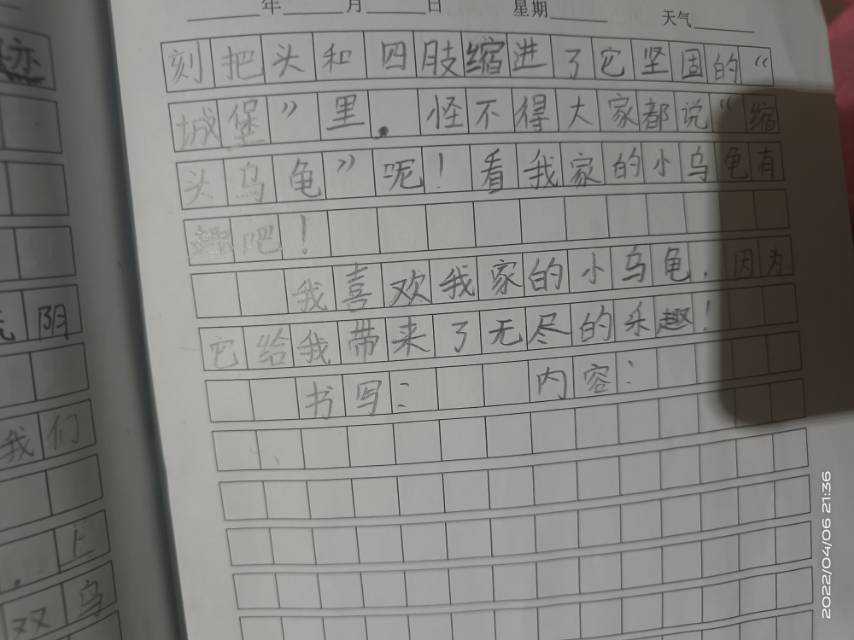 年 月 日 星期 天气
刻把头和四肢缩进了它坚固的“
城堡”里。怪不得大家都说“缩
头乌龟”呢！看我家的小乌龟有
趣吧！
我喜欢我家的小乌龟，因为
它给我带来了无尽的乐趣！
书写： 内容：
阴
我们
上
双乌
2022/04/06 21:36